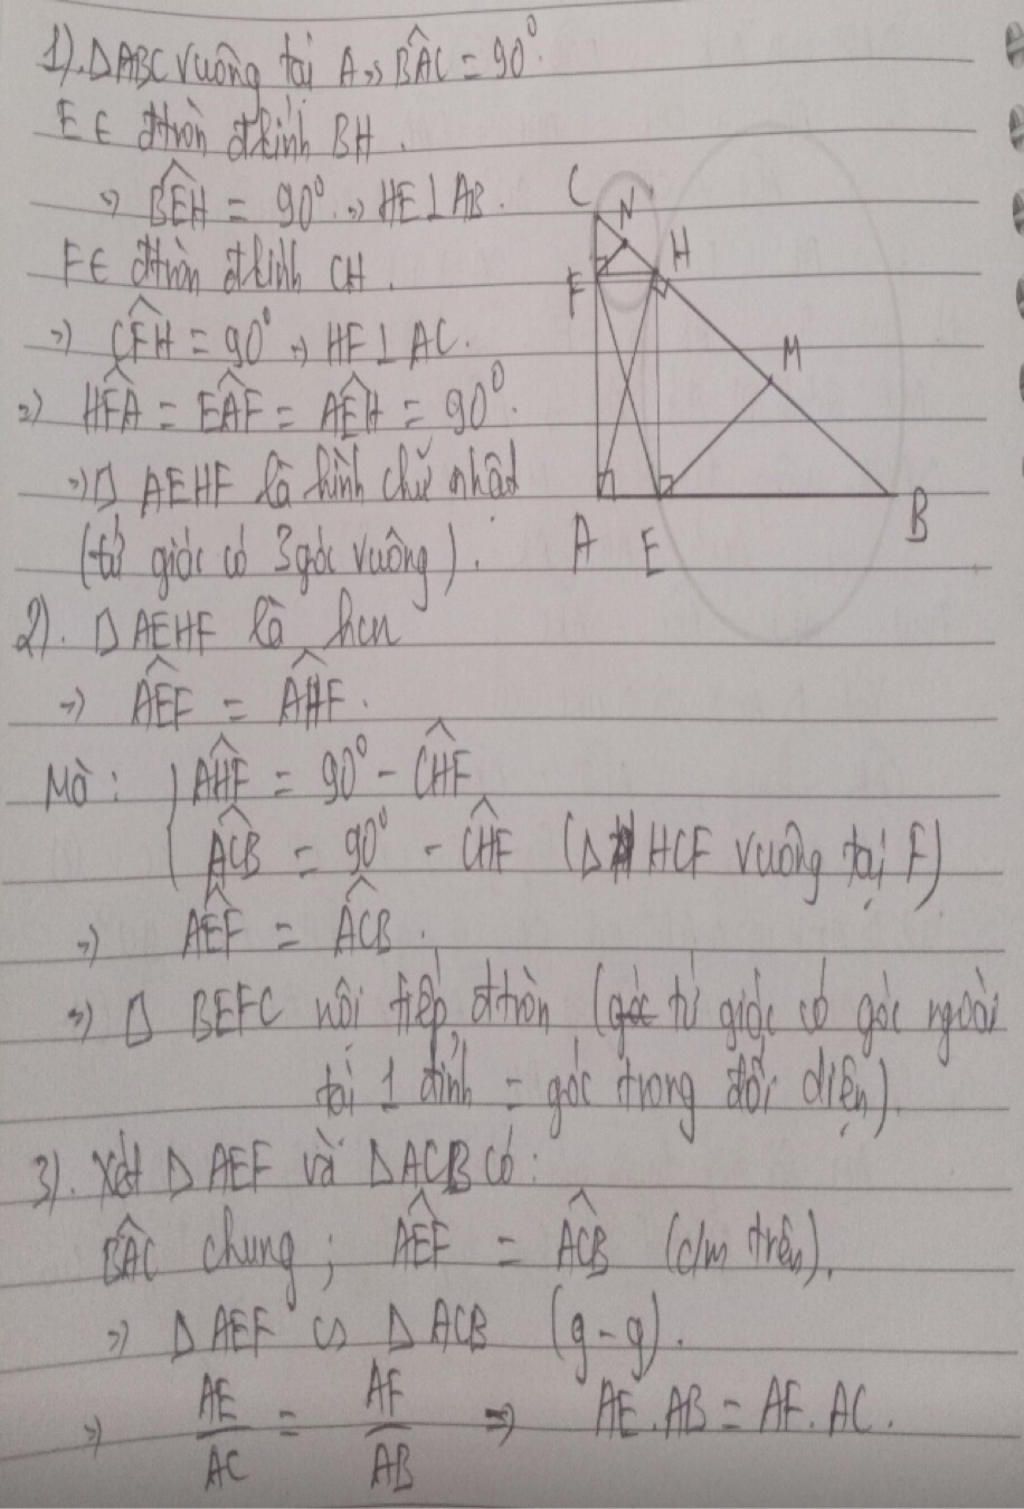 1). ΔABC vuông tại A => BÂC = 90°.
E ∈ đtròn đkính BH.
=> BÊH = 90° => HE ⊥ AB.
F ∈ đtròn đkính CH.
=> CF̂H = 90° => HF ⊥ AC.
=> HF̂A = EÂF = AÊH = 90°.
=> □ AEHF là hình chữ nhật
(tứ giác có 3 góc vuông).
C
N
H
F
M
A
E
B
2). □ AEHF là hcn
=> AÊF = AĤF.
Mà: { AĤF = 90° - CĤF
AĈB = 90° - CĤF (Δ HCF vuông tại F)
=> AÊF = AĈB.
=> □ BEFC nội tiếp đtròn (tứ giác có góc ngoài
tại 1 đỉnh = góc trong đối diện).
3). Xét Δ AEF và Δ ACB có:
BÂC chung; AÊF = AĈB (c/m trên).
=> Δ AEF ∽ Δ ACB (g-g).
=> AE/AC = AF/AB => AE.AB = AF.AC.